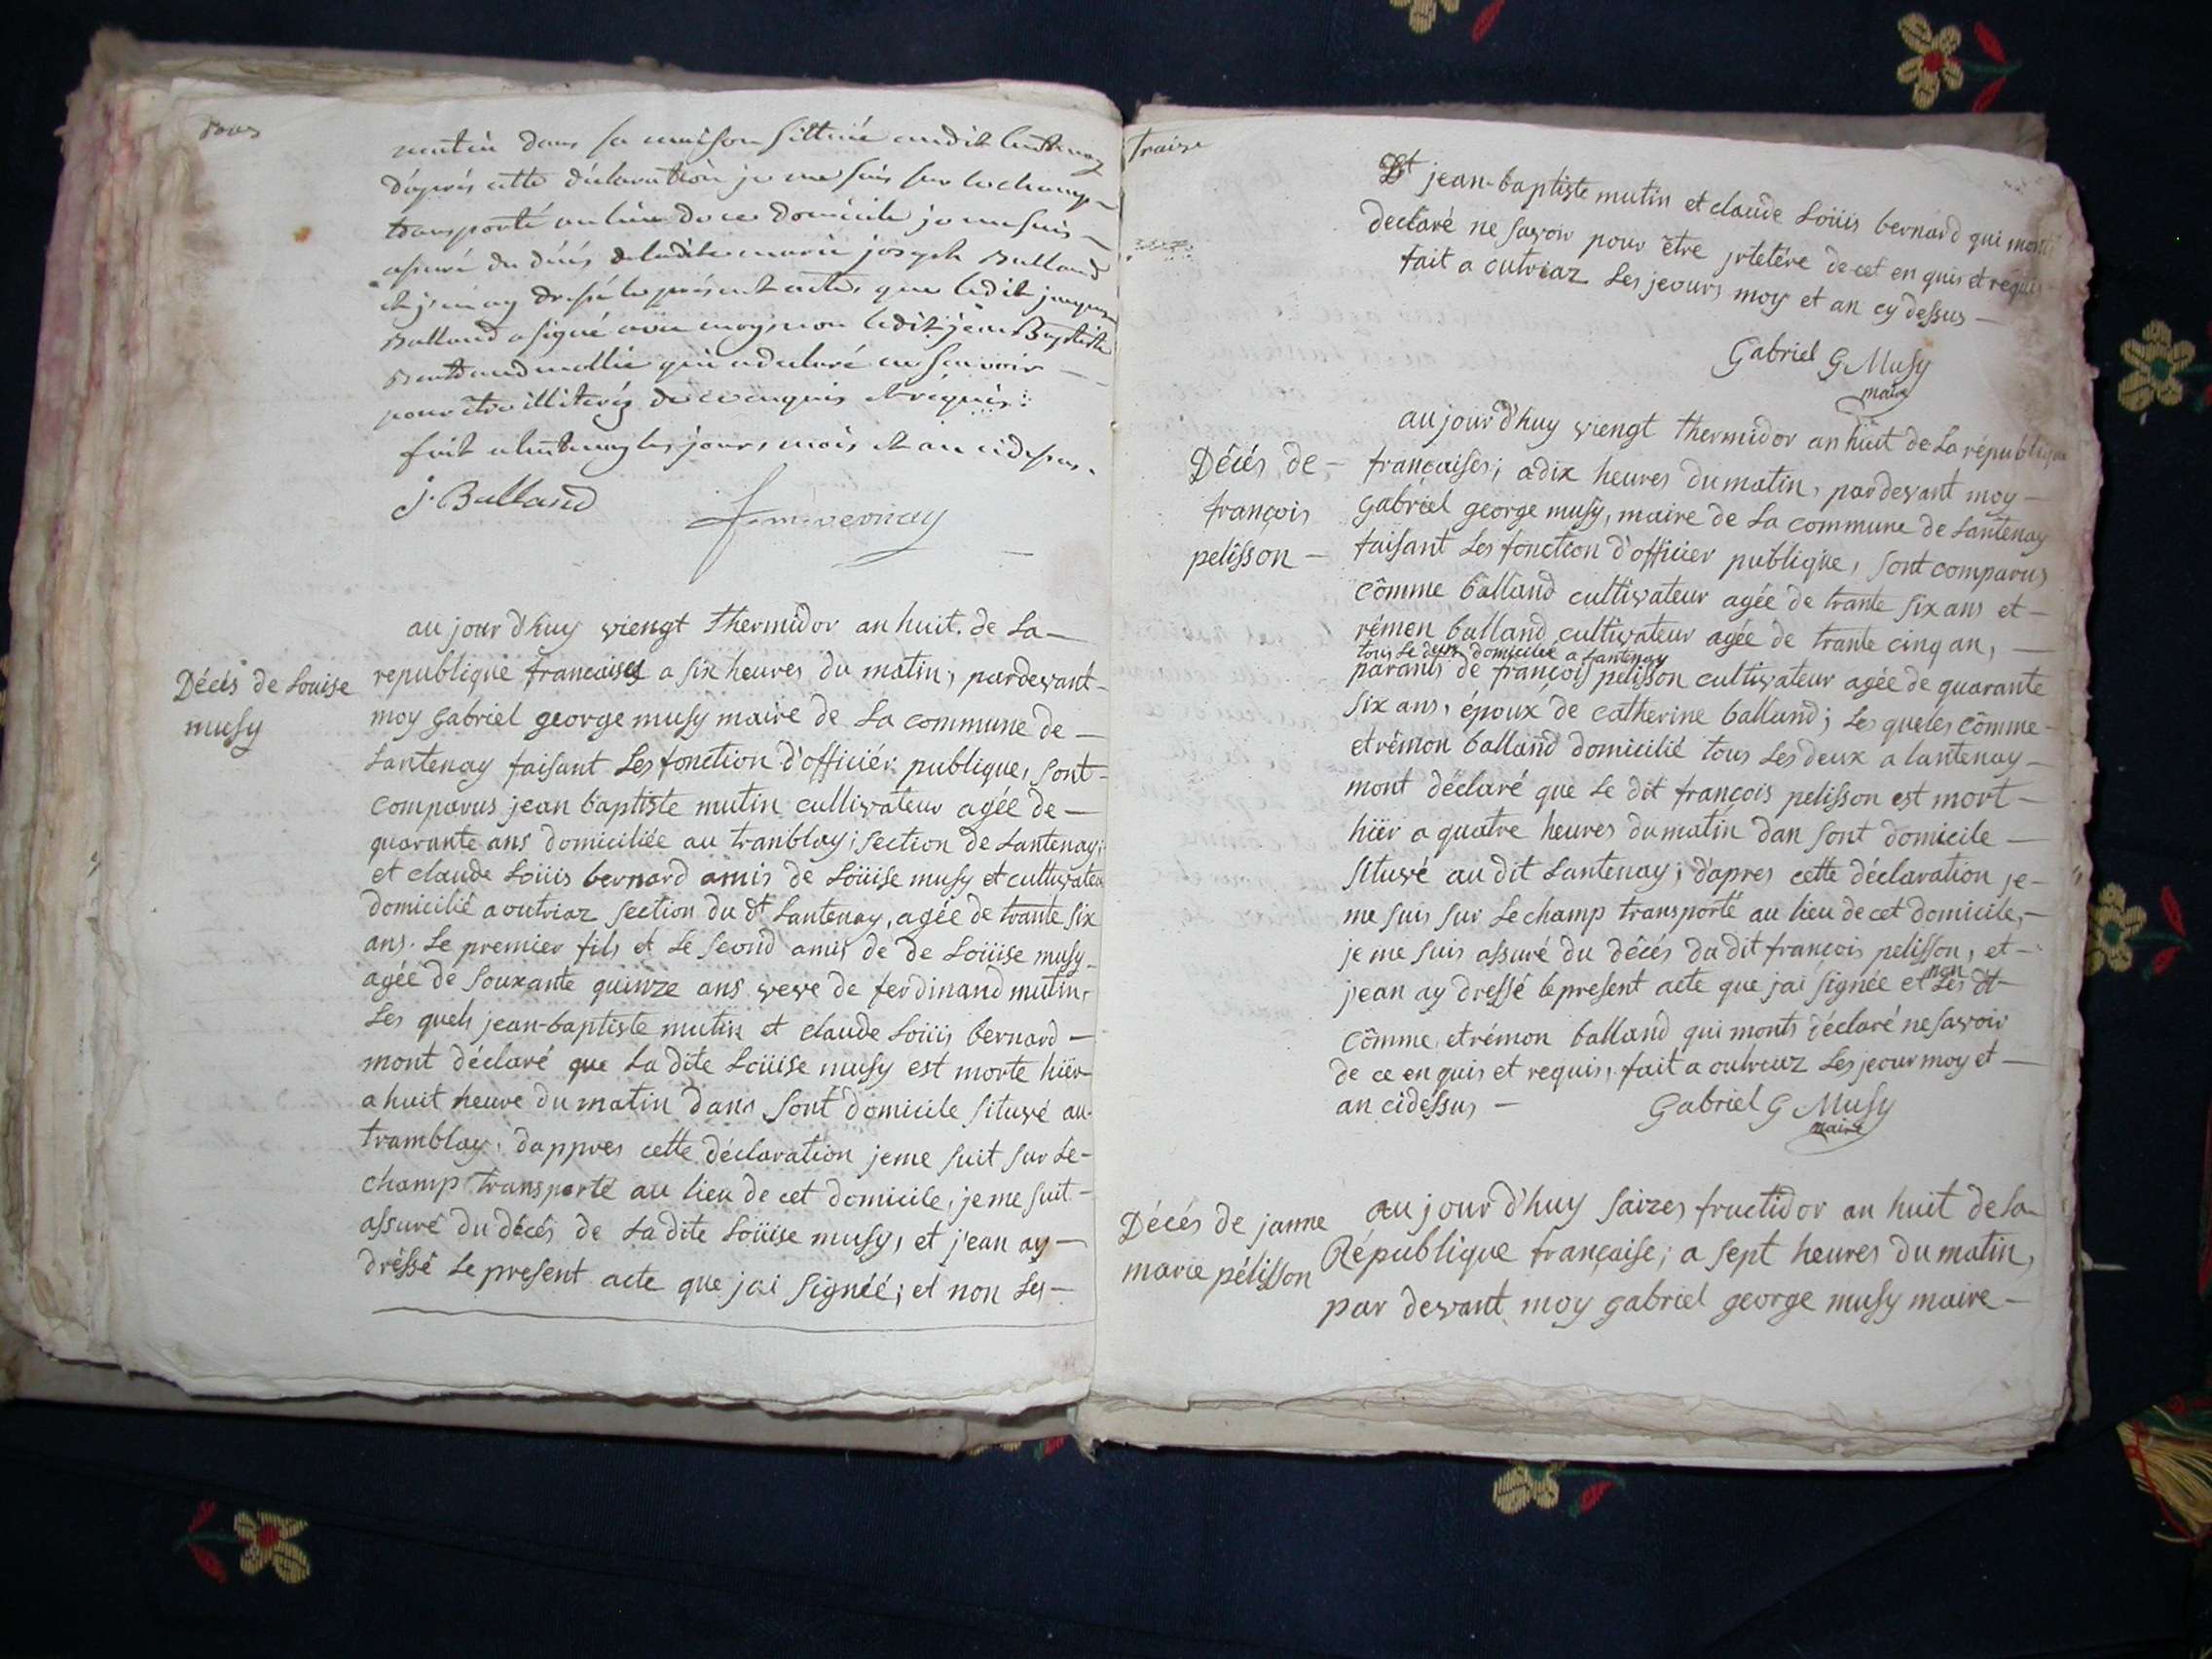 matin dans sa maison sittuée audit lantenay
d'aprés cette déclaration je me suis sur le champ
transporté au lieu de ce domicile je me suis
assuré du décés de ladite marie joseph Balland
et j'en ay dressé le présent acte, que ledit jacques
Balland a signé avec moy, non ledit jean Baptiste
qui a declaré ne savoir
pour être illiteré de ce enquis et réquis
fait a lantenay les jours, mois et an cidessus.
j. Balland
Décés de Louise
musy
au jour d'huy viengt thermidor an huit. de La
republique francaises a six heures du matin, pardevant
moy gabriel george musy maire de La commune de
Lantenay faisant Les fonction d'officiér publique, sont
comparus jean baptiste mutin cultivateur agée de
quarante ans domiciliée au tranblay; section de Lantenay;
et claude Loüis bernard amis de Loüise musy et cultivateu
domicilié a outriaz section du dt Lantenay, agée de trante six
ans. Le premier fils et Le seond amis de de Loüise musy
agée de souxante quinze ans veve de ferdinand mutin,
Les quels jean-baptiste mutin et claude Loüis bernard
mont déclaré que La dite Loüise musy est morte hiër
a huit heure du matin dans sont domicile situvé au
tramblay, dappres cette déclaration jeme suit sur Le
champ transporté au lieu de cet domicile, je me suit
assuré du décés de La dite Loüise musy, et j'ean ay
dréssé Le present acte que jai signéé; et non Les
Traize
Dt jean-baptiste mutin et claude Loüis bernard qui mont
declaré ne savoir pour être de cet en quis et réquis
fait a outriaz Les jeours moy et an cy dessus
Gabriel G Musy
maire
Décés de
françois
pelisson
au jour d'huy viengt thermidor an huit de La république
françaises; a dix heures du matin, pardevant moy
Gabriel george musy, maire de La commune de Lantenay
faisant Les fonction d'officier publique, sont comparus
cômme balland cultivateur agée de trante six ans et
rémon balland cultivateur agée de trante cinq an,
tous Le deux domicilié a Lantenay
parants de françois pelisson cultivateur agée de quarante
six ans, époux de catherine balland; Les queles cômme
et rémon balland domicilié tous Les deux a lantenay
mont déclaré que Le dit françois pelisson est mort
hiër a quatre heures du matin dan sont domicile
situvé au dit Lantenay; d'apres cette déclaration je
me suis sur Le champ transporté au lieu de cet domicile,
je me suis assuré du décés du dit françois pelisson, et
non
j'ean ay dressé le present acte que jai signée et Les dt
cômme et rémon balland qui monts déclaré ne savoir
de ce en quis et requis, fait a outriaz Les jeour moy et
an cidessus
Gabriel G Musy
maire
Décés de janne
marie pélisson
au jour d'huy saizes fructidor an huit de La
République française; a sept heures du matin,
par devant moy gabriel george musy maire